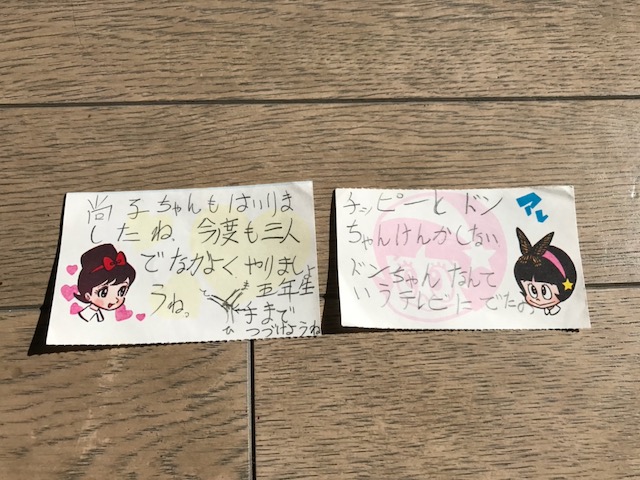 尚子ちゃんもはいりま
したね、今度も三人
でなかよくやりましょ
うね。
五年生
までつづけようね
チッピーとドン
ちゃんけんかしない
ドンちゃんなんて
いうテレビにでたよ
アレ